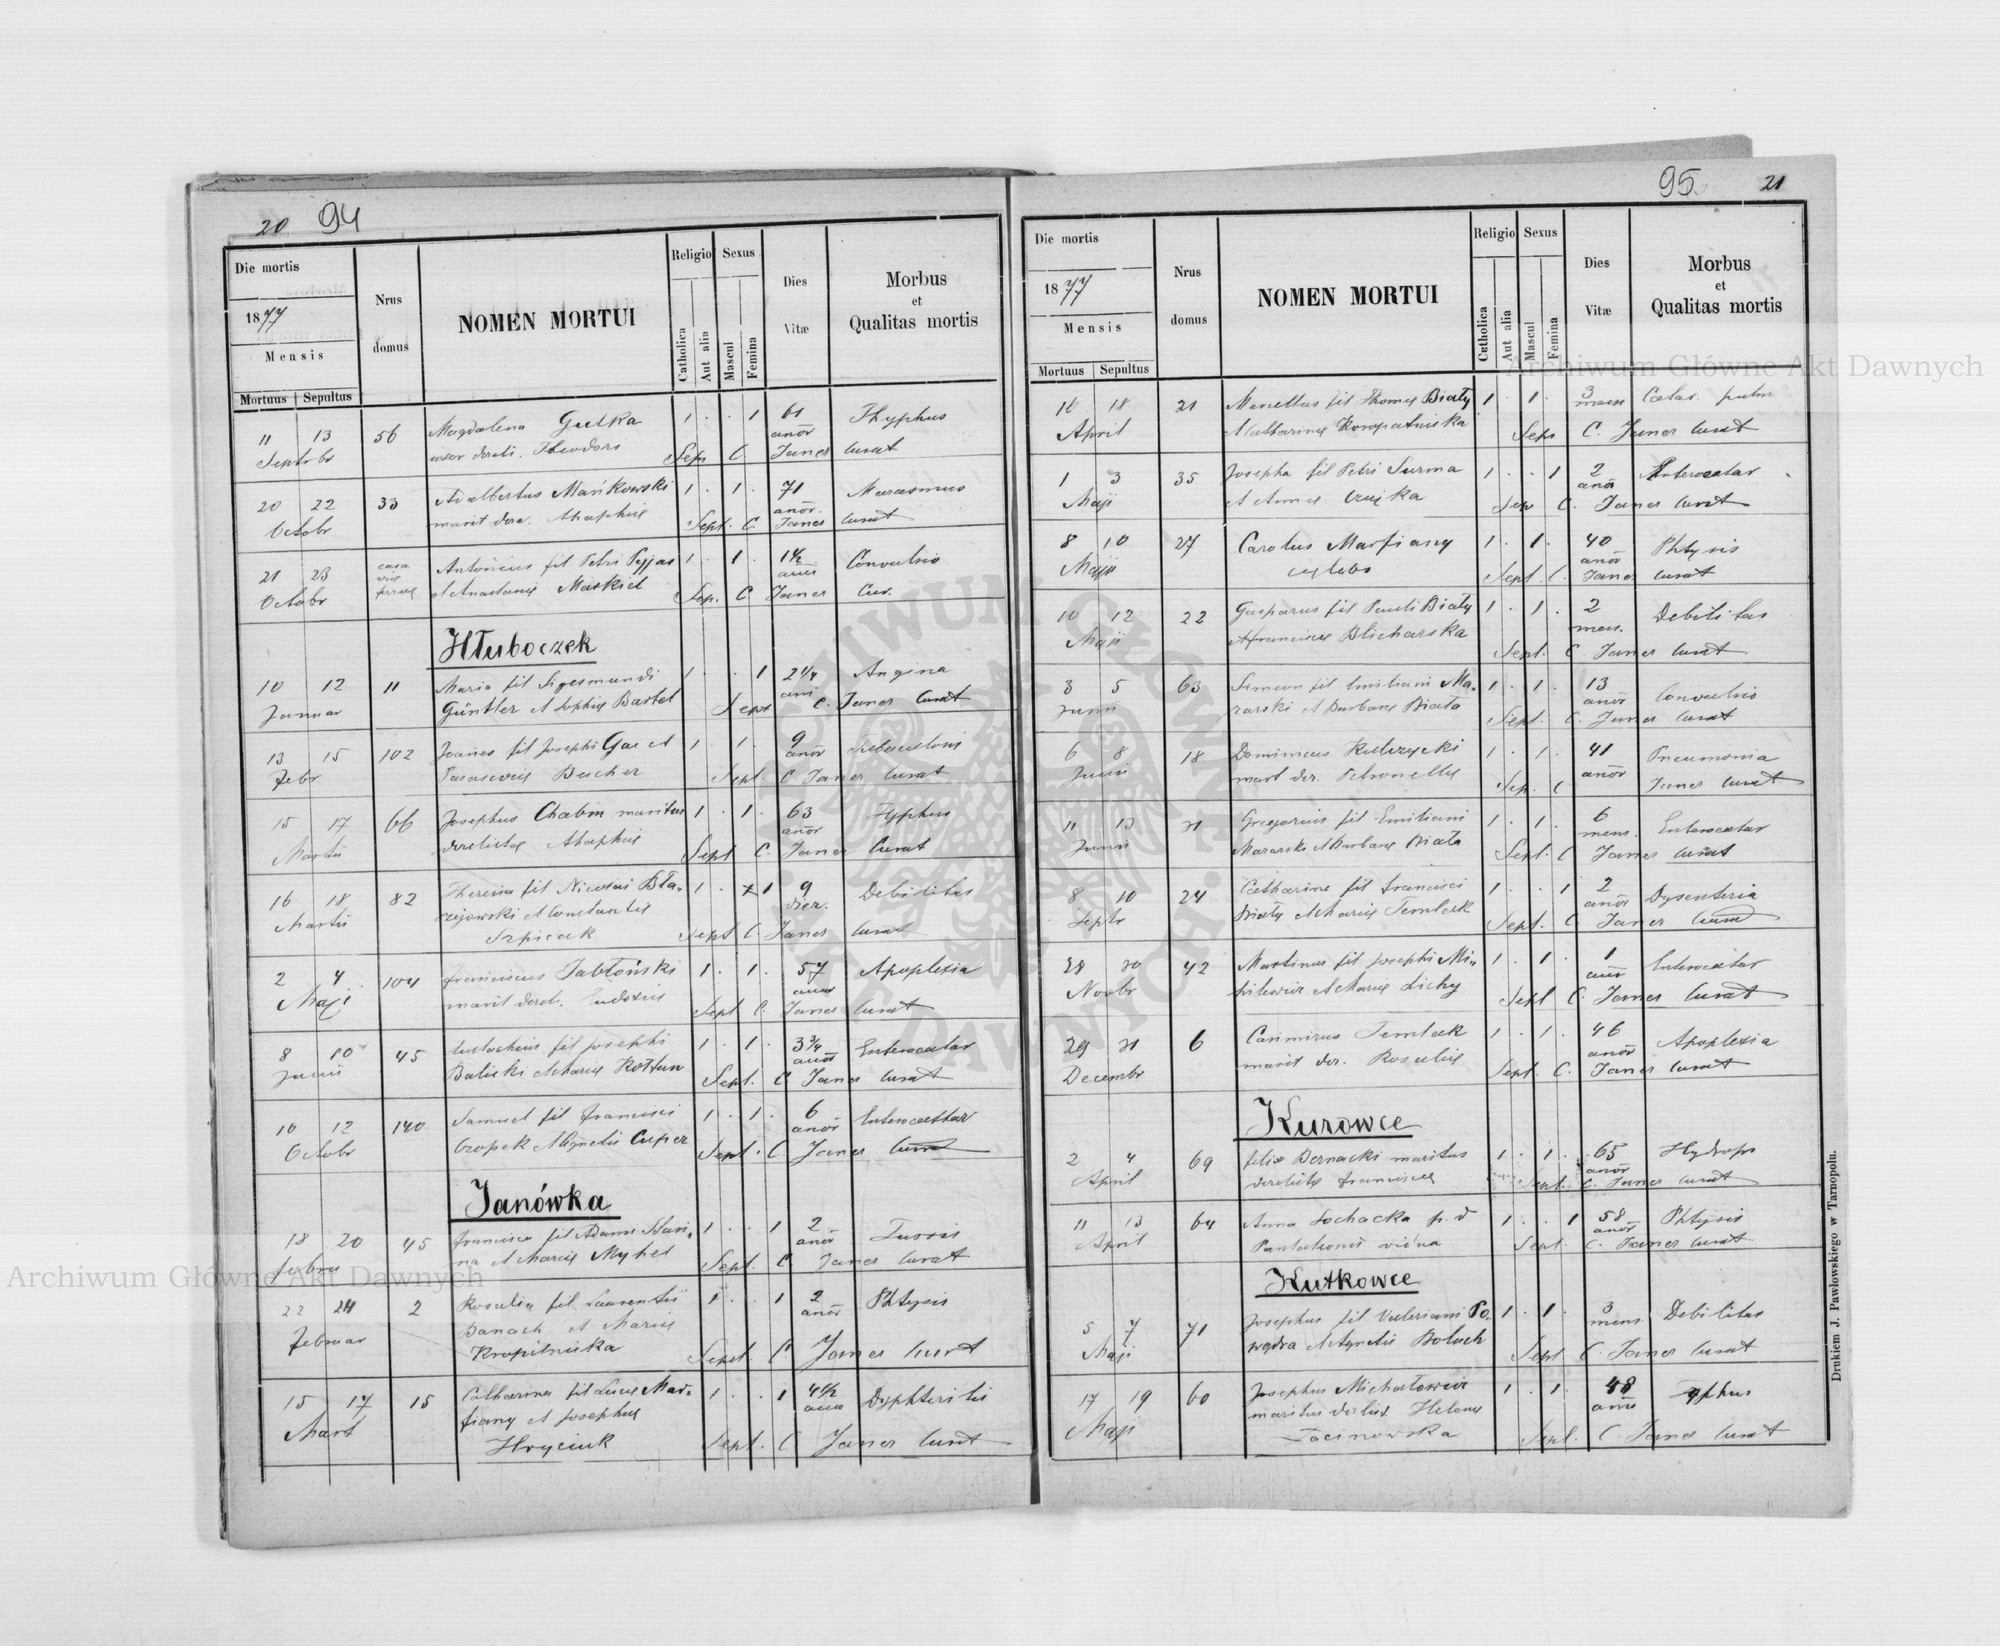 20 94
Die mortis
1877
Mensis
Mortuus Sepultus
Nrus domus
NOMEN MORTUI
Religio
Catholica
Aut alia
Sexus
Mascul
Femina
Dies Vitæ
Morbus
et
Qualitas mortis
11 13 56 Magdalena Gutka 1 . . 1 61 Thyphus
Septobr uxor dereli. Theodori anor
Sep. C. Janer Curat
20 22 33 Adalbertus Mańkowski 1 . 1 . 71 Marasmus
Octobr marit dere. Agaphiæ anor.
Sept. C. Janer Curat
21 23 casa Antonius fil Petri 1 . 1 . 1½ Convulsio
Octobr et Anastasiæ Maskiel
Sep. C. Janer Cur.
Hłuboczek
10 12 11 Maria fil Sigesmundi 1 . . 1 2¼ Angina
Januar Günther et Sophiæ Bartel
Sept C. Janer Curat
13 15 102 Joannes fil Josephi Gac et 1 . 1 . 9
Febr Parasceviæ Bucher anor
Sept C. Janer Curat
15 17 66 Josephus Chabin maritus 1 . 1 . 63 Typhus
Martii derelictæ Agaphiæ anor
Sept C. Janer Curat
16 18 82 Theresia fil Nicolai Bła- 1 . x 1 9 Debilitas
Martii żejowski et Constantiæ dier.
Szpicak
Sept C. Janer Curat
2 4 104 Franciscus Jabłoński 1 . 1 . 57 Apoplexia
Maji marit derel. Eudoxiæ
Sept C. Janer Curat
8 10 45 Eustachius fil Josephi 1 . 1 . 3¾ Enterocatar
Junii Balicki et Mariæ Kołtun anor
Sept. C Janer Curat
10 12 140 Samuel fil Francisci 1 . 1 . 6 Enterocathar
Octobr Czopek et Agnetis Cuper anor
Sept. C. Janer Curat
Janówka
18 20 45 Francisca fil Adami 1 . . 1 2 Tussis
Febru na et Mariæ Mychel anor
Sept. C Janer Curat
22 24 2 Rosalia fil Laurentii 1 . . 1 2 Phtysis
Februar Banach et Mariæ anor
Kropilnicka
Sept. C Janer Curat
15 17 15 Catharina fil Lucæ Mar- 1 . . 1 4½ Dyphteritis
Mart fiany et Josephæ
Hryciuk
Sept. C Janer Curat
95 21
Die mortis
1877
Mensis
Mortuus Sepultus
Nrus domus
NOMEN MORTUI
Religio
Catholica
Aut alia
Sexus
Mascul
Femina
Dies Vitæ
Morbus
et
Qualitas mortis
16 18 21 Marcellus fil Thomæ Biały 1 . 1 . 3 Catar. pulm
April et Catharinæ Koropatnicka mens
Sept C. Janer Curat
1 3 35 Josepha fil Petri Surma 1 . . 1 2 Enterocatar
Maji et Annæ anor
Sep C. Janer Curat
8 10 27 Carolus Marfiany 1 . 1 . 40 Phtysis
Maji cælebs anor
Sept. C. Janer Curat
10 12 22 Gasparus fil Pauli Biały 1 . 1 . 2 Debilitas
Maji et Franciscæ Blicharska mens.
Sept. C Janer Curat
3 5 63 Simeon fil Emiliani Ma- 1 . 1 . 13 Convulsio
Junii zarski et Barbaræ Biała anor
Sept. C. Janer Curat
6 8 18 Dominicus Kulczycki 1 . 1 . 41 Pneumonia
Junii marit der. Petronellæ anor
Sep. C Janer Curat
11 13 Gregorius fil Emiliani 1 . 1 . 6 Enterocatar
Junii Mazarski et Barbaræ Biała mens.
Sept. C Janer Curat
8 10 24 Catharina fil Francisci 1 . . 1 2 Dysenteria
Septr Biały et Mariæ Temlak anor
Sept. C. Janer Curat
28 30 42 Martinus fil Josephi Mi- 1 . 1 . 1 Enterocatar
Novbr et Mariæ Lichy
Sept C. Janer Curat
29 31 6 Casimirus Temlak 1 . 1 . 46 Apoplexia
Decembr marit der. Rosaliæ anor
Sept. C. Janer Curat
Kurowce
2 4 69 Felix Bernacki maritus 1 . 1 . 65 Hydrops
April derelictæ Franciscæ anor
Sept. C. Janer Curat
11 13 64 Anna Lochacka p. d 1 . . 1 58 Phtysis
April Pantaleonis vidua anor
Sept. C. Janer Curat
Kutkowce
5 7 71 Josephus fil Valeriani Po- 1 . 1 . 3 Debilitas
Maji wądra et Agnetis Boluch mens
Sept C. Janer Curat
17 19 60 Josephus Michałowicz 1 . 1 . 48 Typhus
Maji maritus derlict Helenæ
Łacinowska
Sept. C. Janer Curat
Drukiem J. Pawłowskiego w Tarnopolu.
Archiwum Główne Akt Dawnych
Archiwum Główne Akt Dawnych
ARCHIWUM GŁÓWNE AKT DAWNYCH